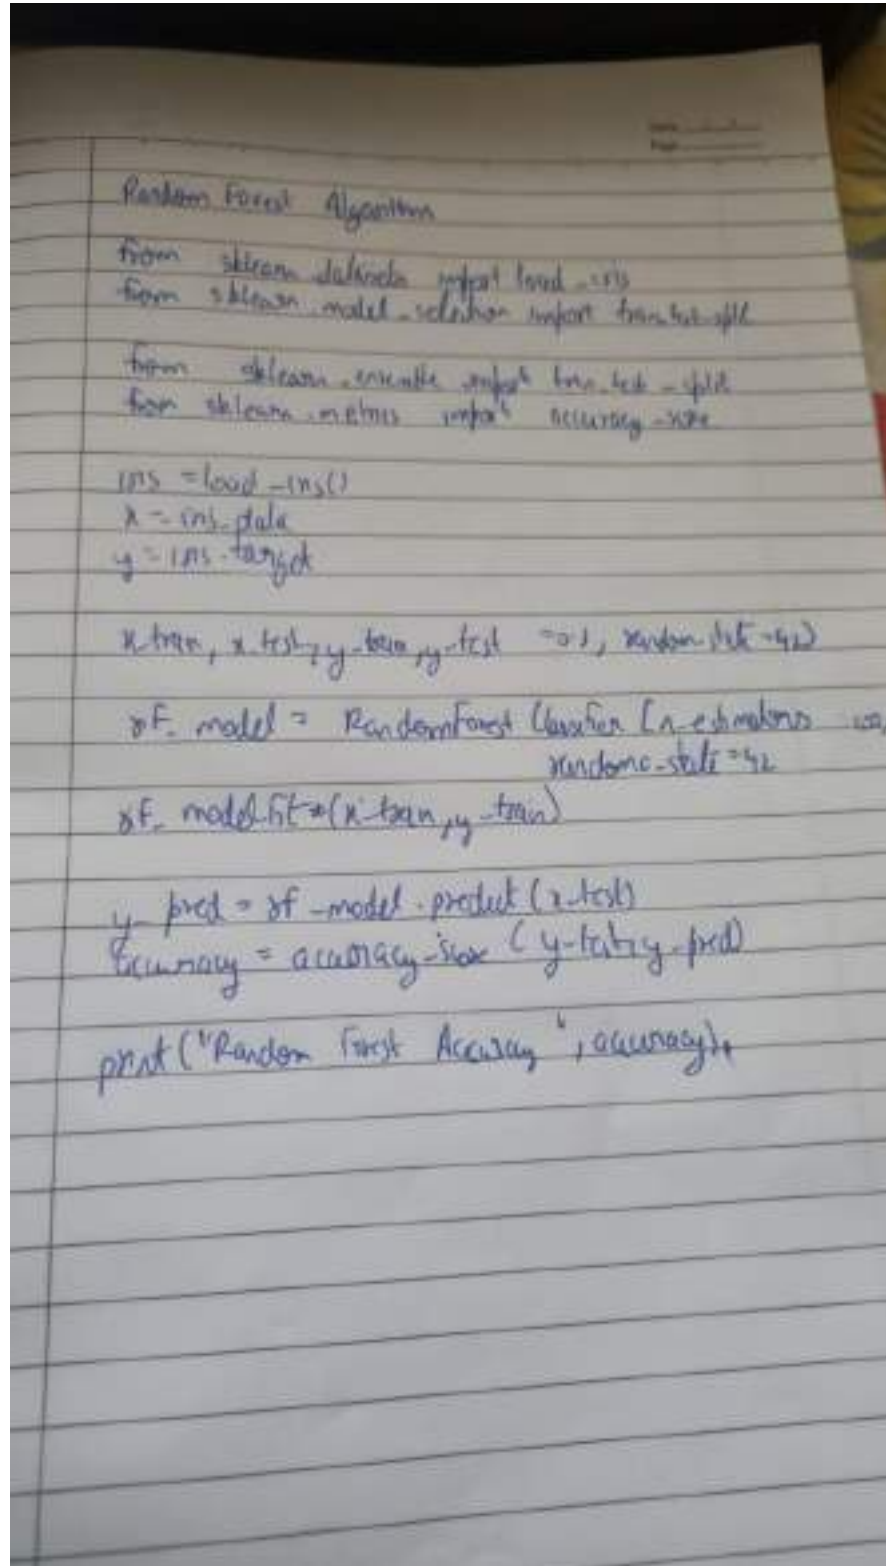 Random Forest Algorithm
from sklearn datasets import load_iris
from sklearn.model_selection import train_test_split
from sklearn.ensemble import train_test_split
from sklearn.metrics import accuracy_score
iris = load_iris()
x = iris.data
y = iris.target
x_train, x_test, y_train, y_test =0.2, random_state=42)
rf_model = RandomForest Classifier (n_estimators 100,
random_state=42
rf_model.fit (x_train, y_train)
y_pred = rf_model.predict (x_test)
accuracy = accuracy_score (y_test, y_pred)
print ("Random Forest Accuracy", accuracy).